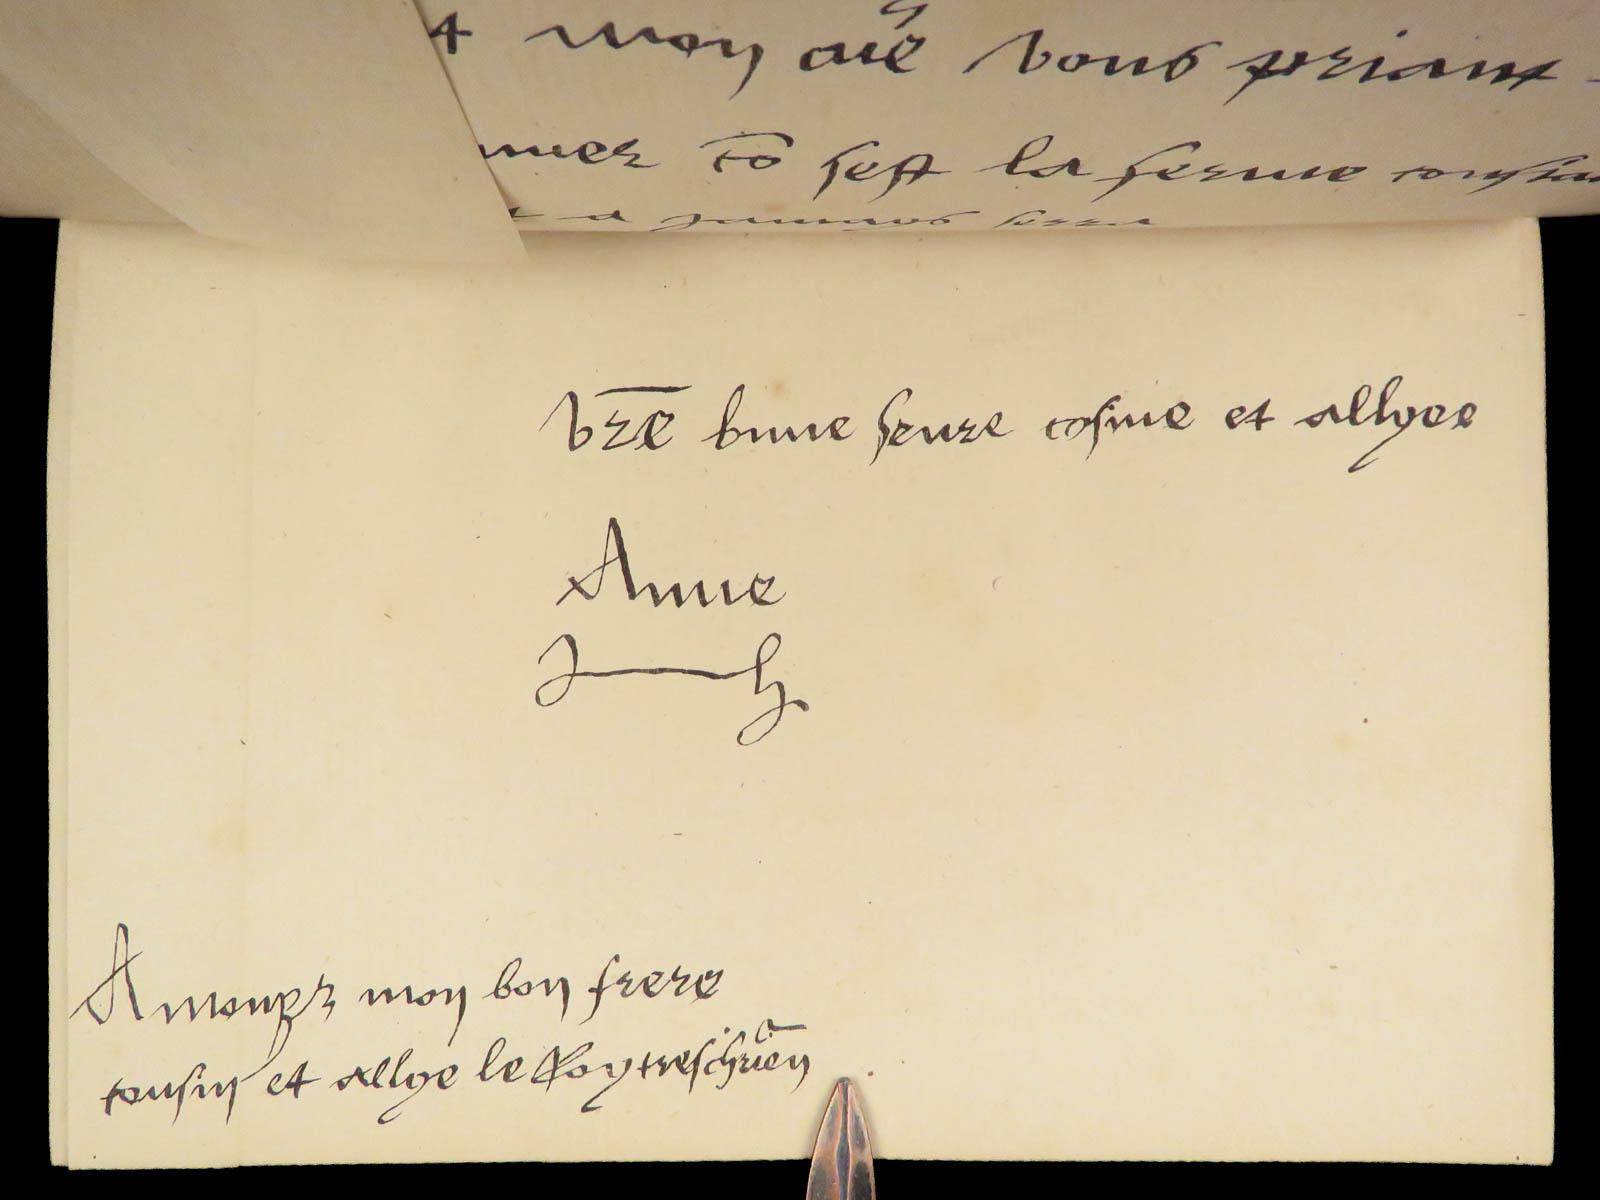 moy aue vous priant
co sest la ferme
a jamais sera
vre bnne seure cosine et allyee
Anne
A monsr mon bon frere
cousin et allye le Roy treschrien